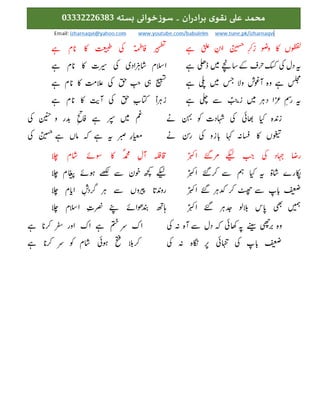 محمد علی نقوی برادران ۔ سوزخوانی بستہ 03332226383
Email: izharnaqvi@yahoo.com www.youtube.com/babulelm www.tune.pk/izharnaqvi
لفظوں کا وضو ذکرِ حسینؑ ابن علیؑ ہے تطہیر فاطمہؑ کی طبیعت کا نام ہے
یہ دل کی کسک حرف کے سانچے میں ڈھلی ہے اسلام شاہزادیؑ کی سیرت کا نام ہے
مجلس ہے وہ آغوشِ ولا جس میں پلی ہے تسبیح ہی حب حق کی علامت کا نام ہے
یہ رسم عزا دہر میں زینبؑ سے چلی ہے زہراؑ کتاب حق کی آیت کا نام ہے
زندہ کیا بھائی کی شہادت کو بہن نے غم میں سپر ہے فاتح بدر و حنین کی
تیغوں کا فسانہ کہا بازو کی رسن نے معیار صبر یہ ہے کہ ماں ہے حسینؑ کی
رضا جہاد کی جب لیکے مرگئے اکبرؑ قافلہ آل محمدؐ کا سوئے شام چلا
پکارے شاہؑ یہ کیا ہم سے کرگئے اکبرؑ لیکے کچھ خون سے لکھے ہوئے پیغام چلا
ضعیف باپ سے چھٹ کر کدہر گئے اکبرؑ روندتا پیروں سے ہر گردش ایام چلا
ہمیں بھی پاس بلالو جدہر گئے اکبرؑ ہاتھ بندھوائے پئے نصرت اسلام چلا
وہ برچھی سینے پہ کھائی کہ دل سے آہ نہ کی اک سر ختم ہے اک اور سفر سر کرنا ہے
ضعیف باپ کی تنہائی پر نگاہ نہ کی کربلا فتح ہوئی شام کو سر کرنا ہے